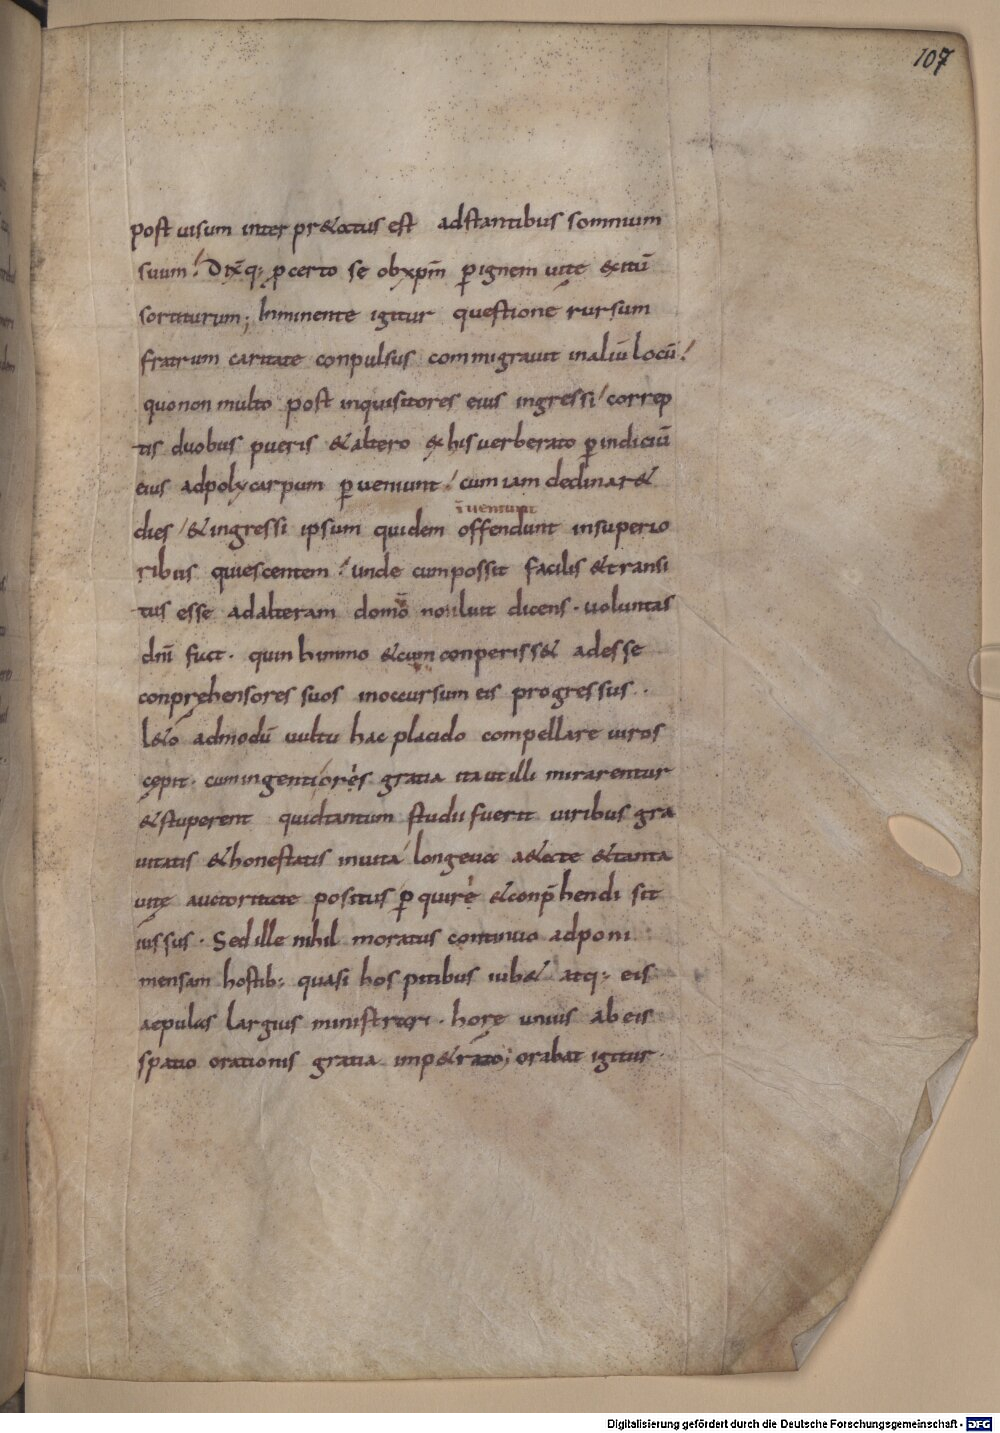 107
post uisum inter pr&atus est adstantibus somnium
suum! Dix̄q; ꝑcerto se obxp̄m ꝑignem uite exitū
sortiturum; Inminente igitur questione rursum
fratrum caritate conpulsus commigrauit inaliū locū!
quonon multo post inquisitores eius ingressi! correp
tis duobus pueris &altero exhisuerberato ꝑindiciū
eius adpolycarpum ꝑueniunt! cum iam declinar&
īueniunt
dies! &ingressi ipsum quidem offendunt insuperio
ribus quiescentem! unde cumpossit facilis &transi
tus esse adalteram domū noluit dicens. uoluntas
dn̄i fiat. quinhimmo &cum conperiss& adesse
conprehensores suos inoccursum eis progressus.
l&o admodū uultu hac placido compellare uiros
cępit. cumingentiorés gratia itautilli mirarentur
&stuperent quidtantum studii fuerit uiribus gra
uitatis &honestatis inuita! longeua a&ate &tanta
uitę auctoritate positus ꝑquirè &conp̄hendi sit
iussus. Sedille nihil moratus continuo adponi
mensam hostib; quasi hospitibus iub& atq; eis
aepulas largius ministrari. hore unius abeis
spatio orationis gratia imp&rato; orabat igitur.
Digitalisierung gefördert durch die Deutsche Forschungsgemeinschaft - DFG